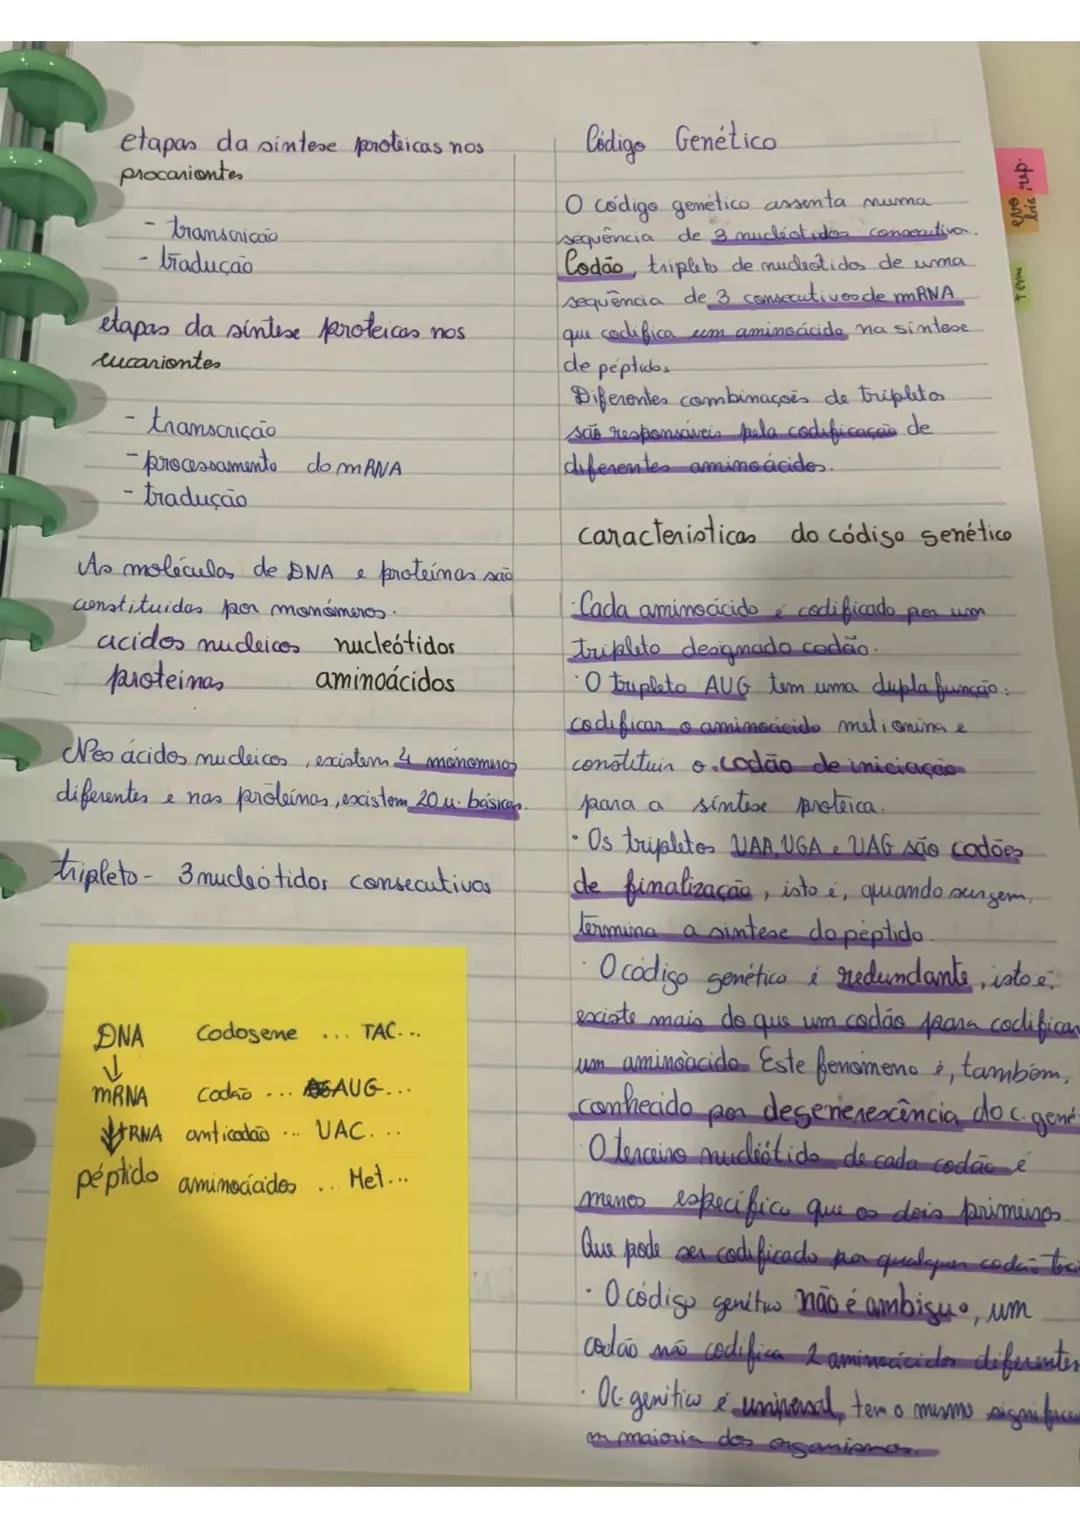 etapas da síntese proteicas nos
procariontes
- transcrição
- tradução
etapas da síntese proteicas nos
eucariontes
- transcrição
- processamento do mRNA
- tradução
As moléculas de DNA e proteínas são
constituidas por monómeros.
acidos nucleicos nucleótidos
proteinas aminoácidos
Nos ácidos nucleicos, existem 4 monómeros
diferentes e nas proteínas, existem 20 u. básicas.
tripleto - 3 nucleótidos consecutivos
DNA Codogene ... TAC...
↓
mRNA codão ... AUG...
↓tRNA anticodão ... UAC...
péptido aminoácidos ... Met...
Código Genético
O código genético assenta numa
sequência de 3 nucleótidos consecutivos.
Codão, tripleto de nucleótidos de uma
sequência de 3 consecutivos de mRNA
que codifica um aminoácido na síntese
de péptidos
Diferentes combinações de tripletos
são responsáveis pela codificação de
diferentes aminoácidos.
caracteristicas do código genético
·Cada aminoácido é codificado por um
tripleto designado codão.
·O tripleto AUG tem uma dupla função:
codificar o aminoácido metionina e
constituir o codão de iniciação
para a síntese proteica.
·Os tripletos UAA, UGA e UAG são codões
de finalização, isto é, quando surgem,
termina a sintese do péptido.
·O código genético é redundante, isto é,
existe mais do que um codão para codificar
um aminoácido. Este fenómeno é, também,
conhecido por degenerescência do c. gené
O terceiro nucleótido de cada codão é
menos especifico que os dois primeiros.
Que pode ser codificado por qualquer codão
·O código genético não é ambiguo, um
codão não codifica 2 aminoácidos diferentes
·O c. genético é universal, tem o mesmo
maioria dos organismos.
evo.
bio: rep.